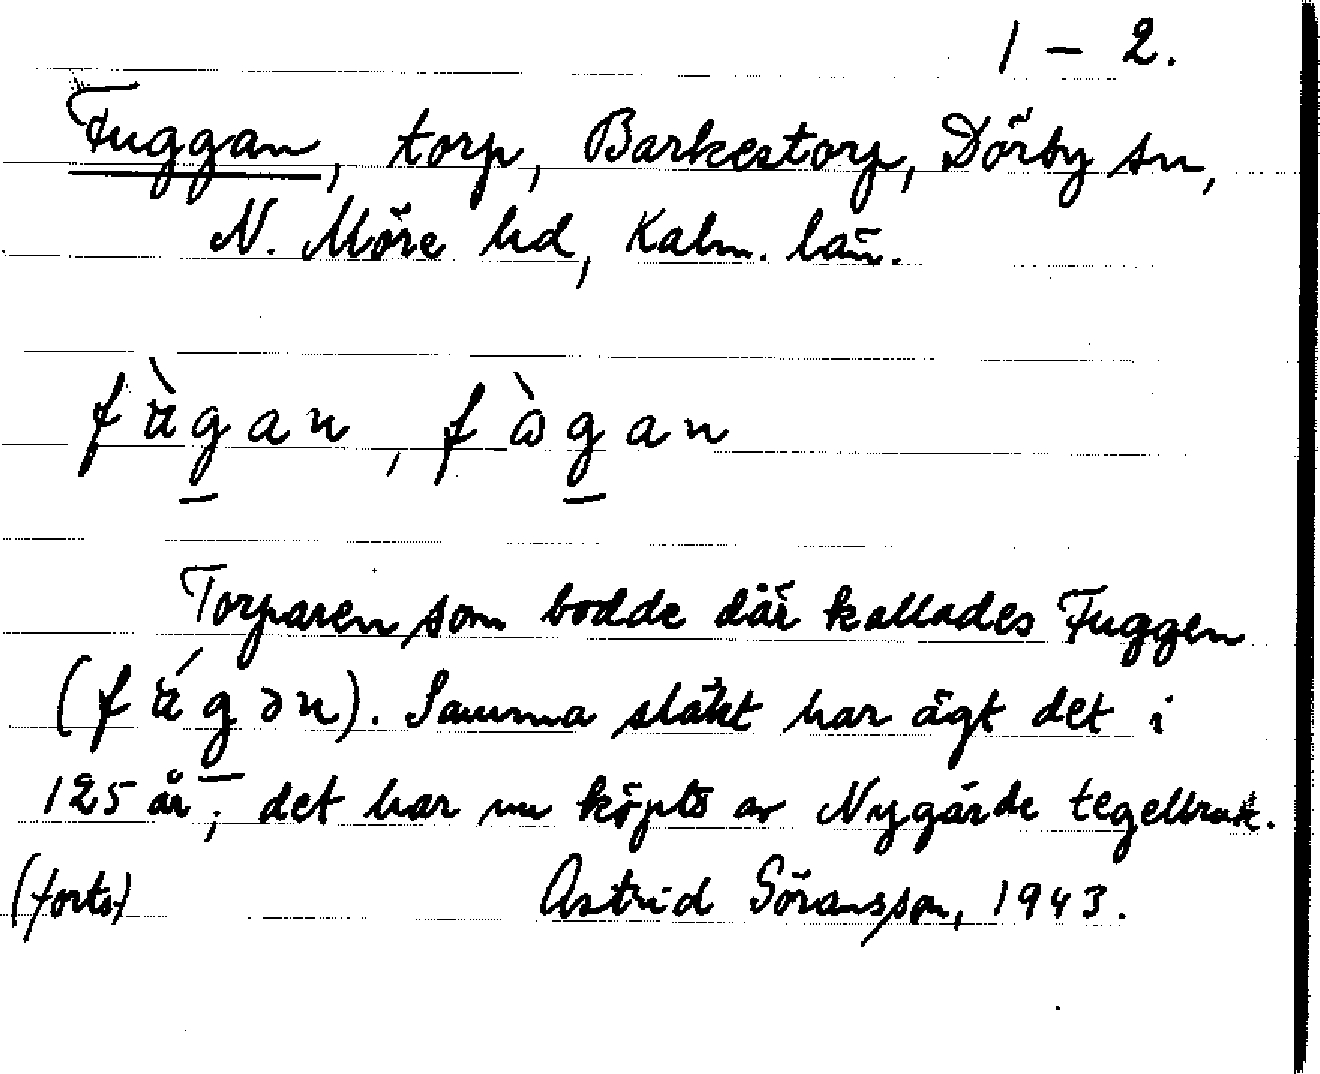 1 – 2.
Fuggan, torp, Barkestorp, Dörby sn,
N. Möre hd, Kalm. län.
fàgan, fògan
Torparen som bodde där kallades Fuggen
(fágən). Samma släkt har ägt det i
125 år; det har nu köpts av Nygärde tegelbruk.
(forts) Astrid Göransson, 1943.